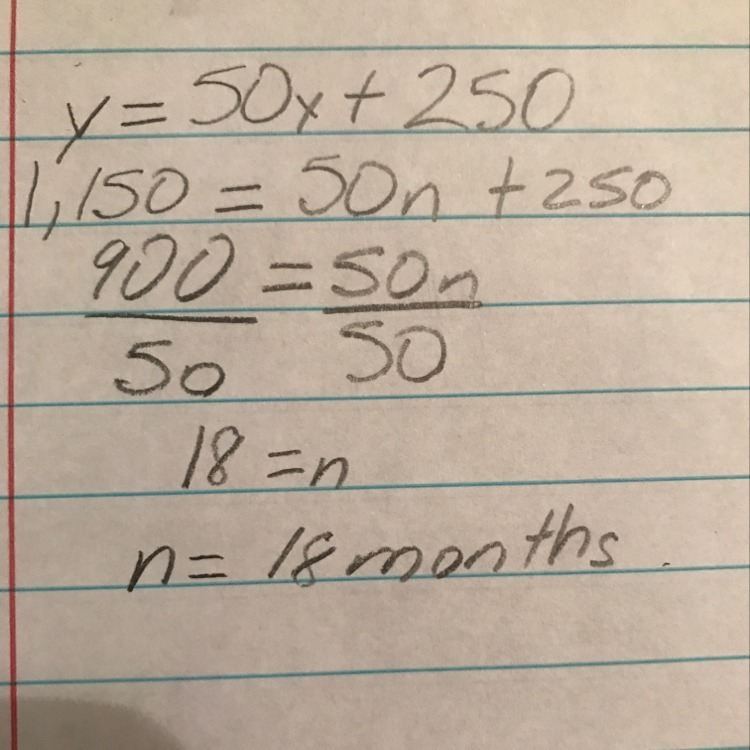 y = 50x + 250
1,150 = 50n + 250
900 = 50n
50 50
18 = n
n = 18 months.